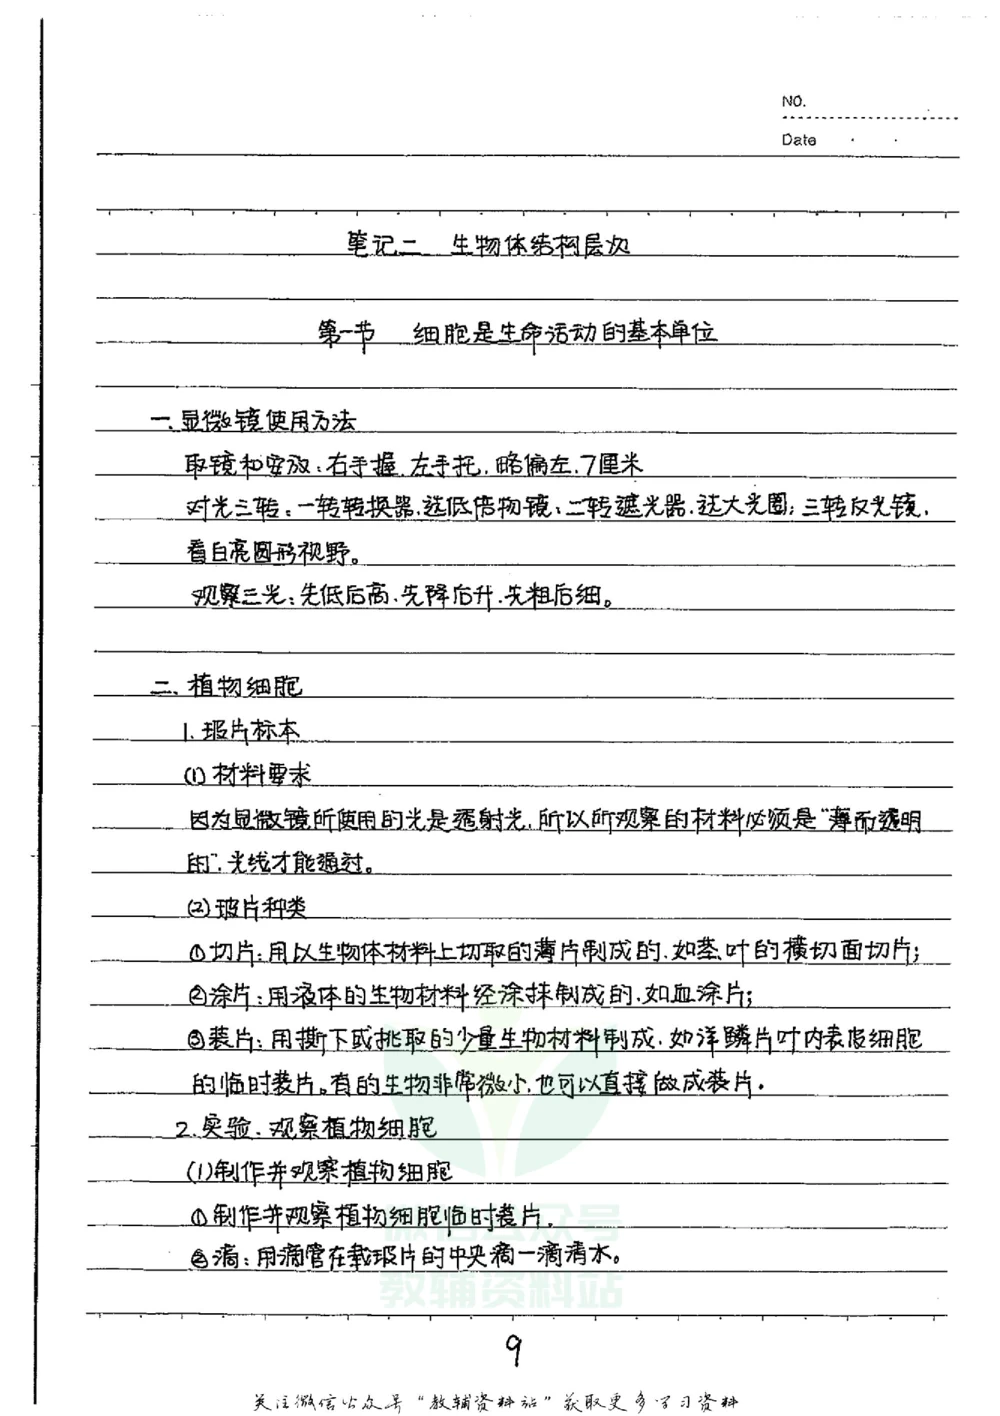 NO.
Date
笔记二 生物体结构层次
第一节 细胞是生命活动的基本单位
一.显微镜使用方法
取镜和安放:右手握.左手托.略偏左.7厘米
对光三转:一转转换器.选低倍物镜;二转遮光器.选大光圈;三转反光镜.
看白亮圆形视野。
观察三光:先低后高.先降后升.先粗后细。
二.植物细胞
1.玻片标本
(1)材料要求
因为显微镜所使用的光是透射光.所以所观察的材料必须是“薄而透明
的”.光线才能通过。
(2)玻片种类
①切片:用以生物体材料上切取的薄片制成的.如茎.叶的横切面切片;
②涂片:用液体的生物材料经涂抹制成的.如血涂片;
③装片:用撕下或挑取的少量生物材料制成.如洋鳞片叶内表皮细胞
的临时装片。有的生物非常微小.也可以直接做成装片.
2.实验.观察植物细胞
(1)制作并观察植物细胞
①制作并观察植物细胞临时装片.
②滴:用滴管在载玻片的中央滴一滴清水。
微信公众号
教辅资料站
9
关注微信公众号“教辅资料站”获取更多学习资料